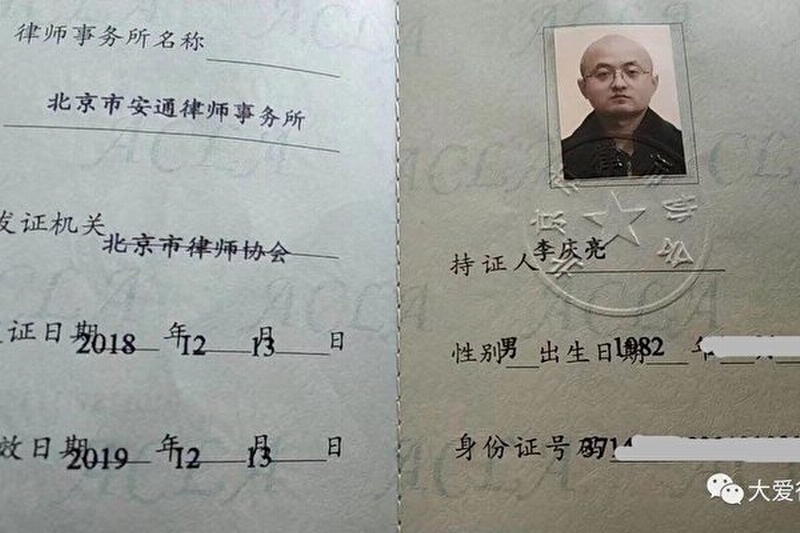 律师事务所名称
北京市安通律师事务所
发证机关
北京市律师协会
证日期2018年12月13日
效日期2019年12月13日
ACLA
持证人李庆亮
性别男 出生日期1982年
身份证号码3714
大爱